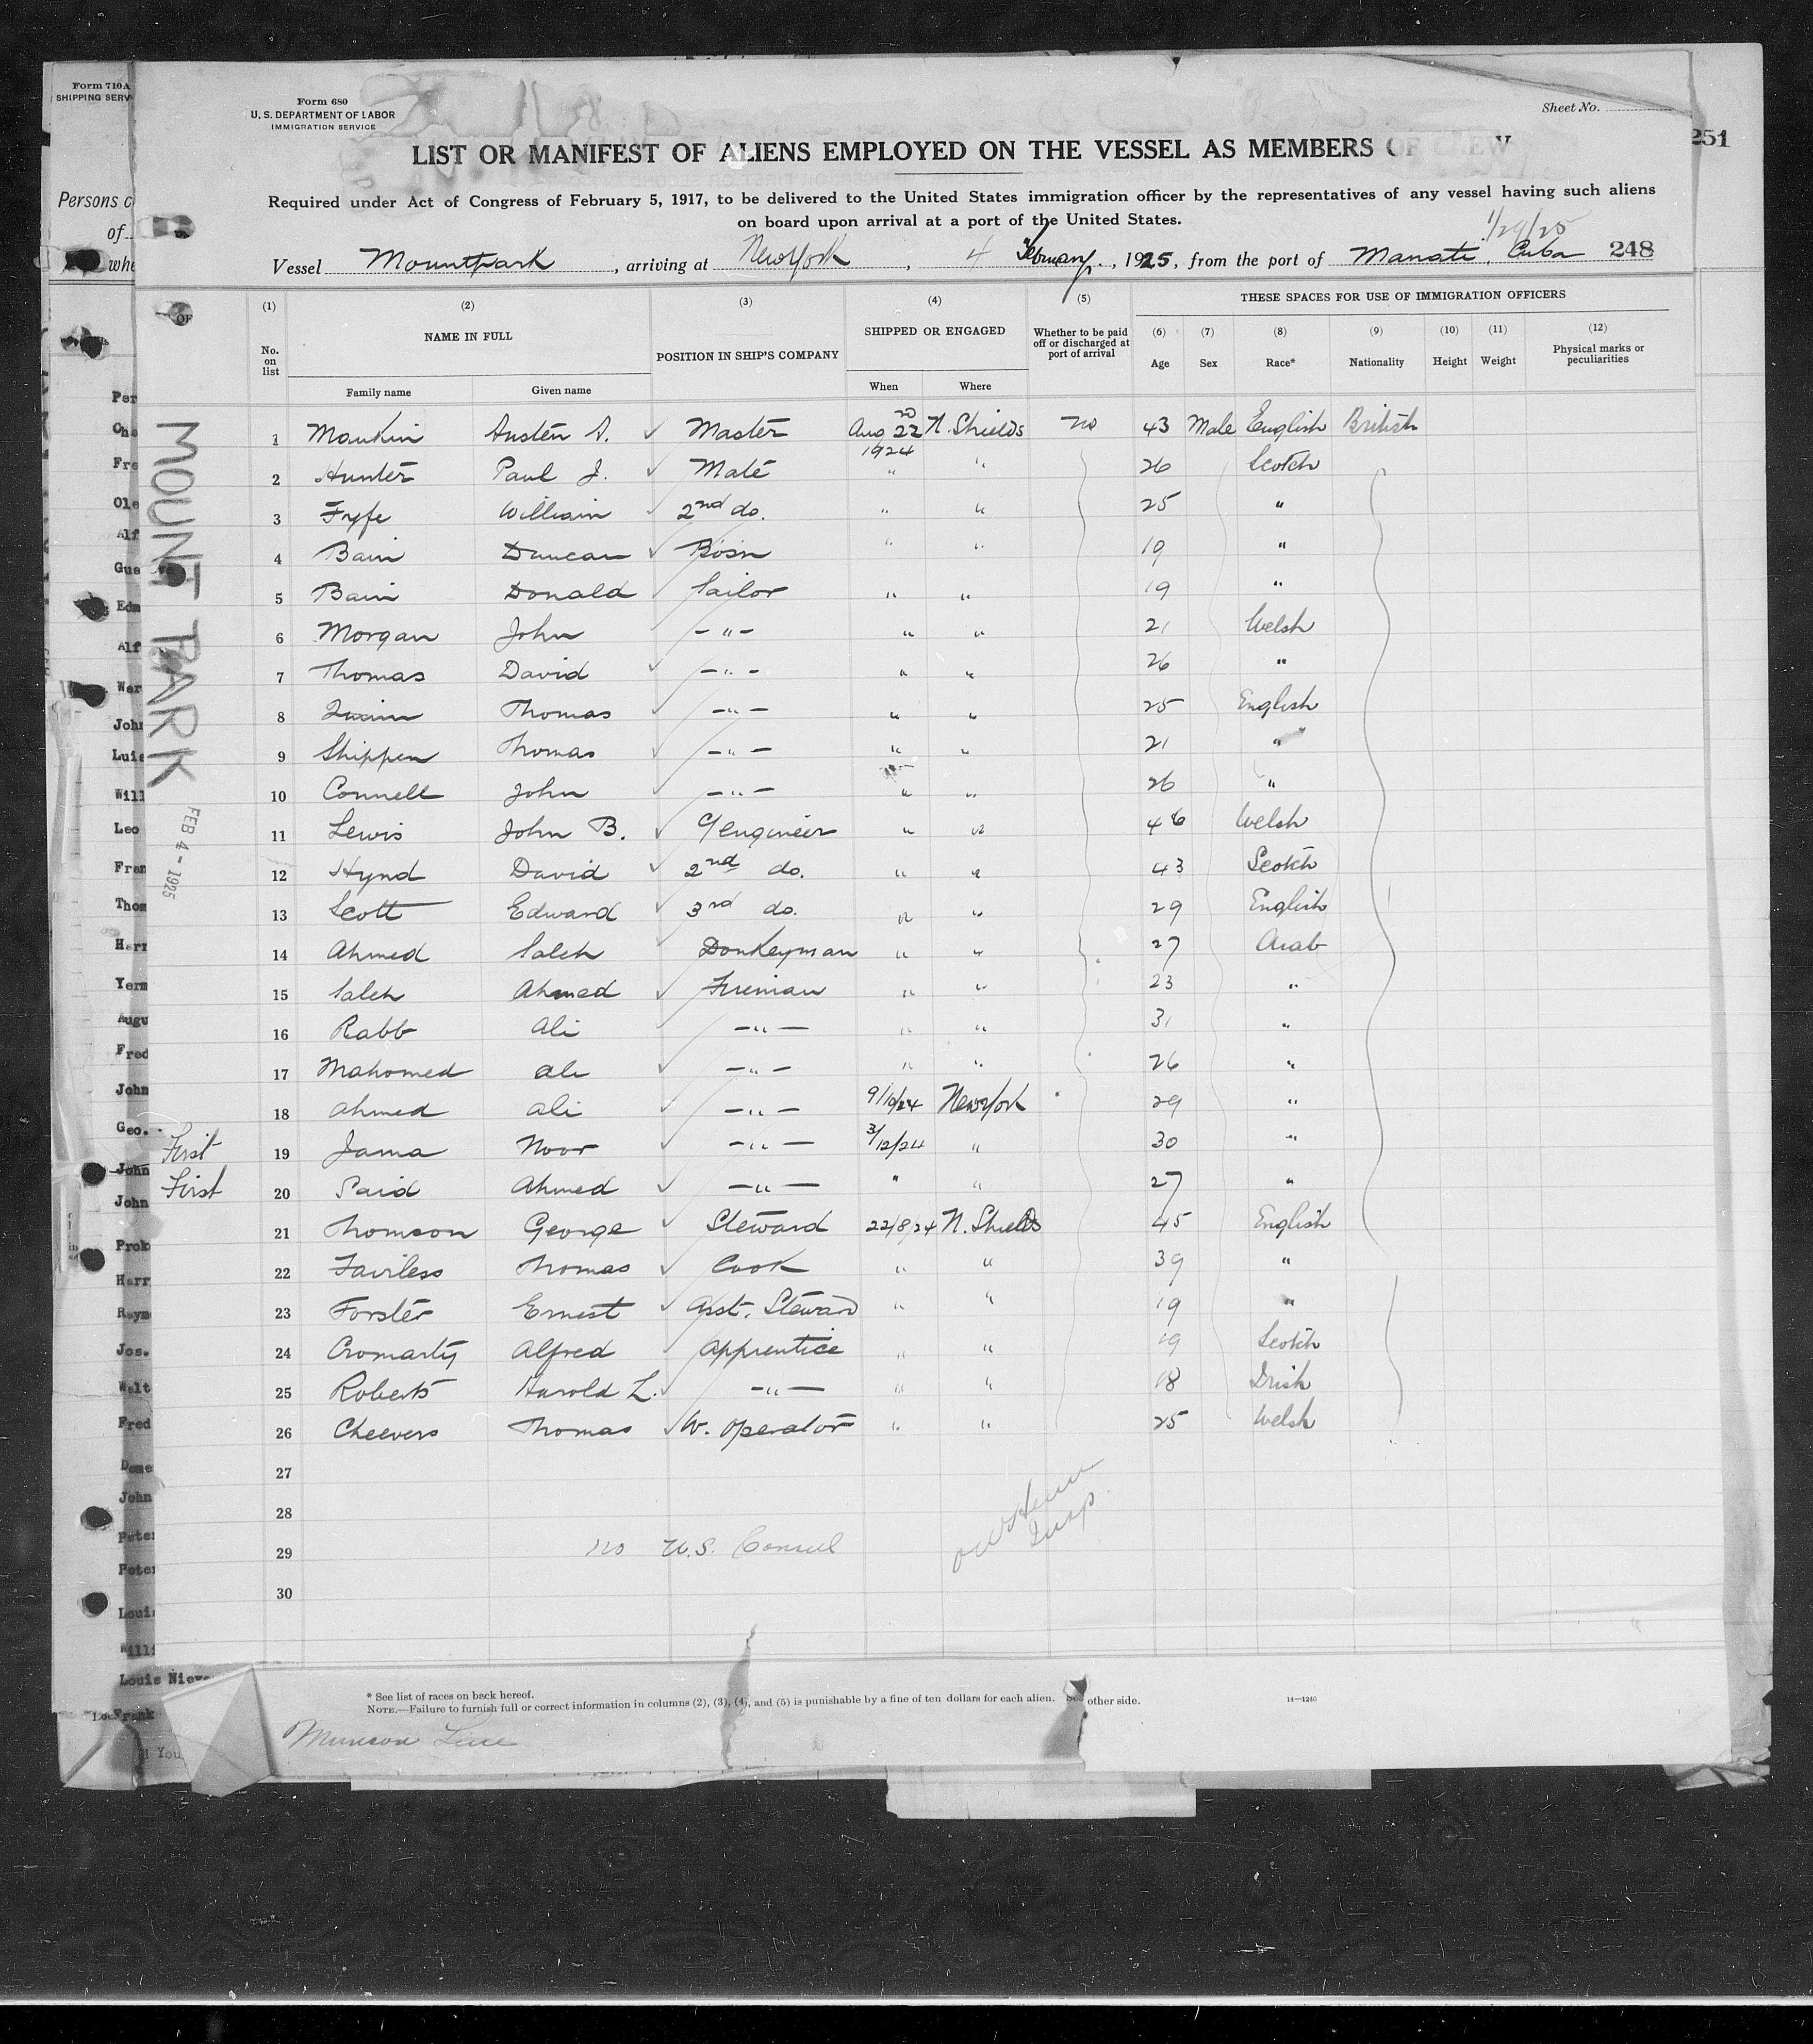 Form 710A
SHIPPING SERV
Persons c
of
whe
Form 680
U. S. DEPARTMENT OF LABOR
IMMIGRATION SERVICE
Sheet No.
251
LIST OR MANIFEST OF ALIENS EMPLOYED ON THE VESSEL AS MEMBERS OF CREW
Required under Act of Congress of February 5, 1917, to be delivered to the United States immigration officer by the representatives of any vessel having such aliens
on board upon arrival at a port of the United States.
1/29/25
Vessel Mountpark, arriving at New York, 4 February, 1925, from the port of Manati, Cuba 248
(1) (2) (3) (4) (5) THESE SPACES FOR USE OF IMMIGRATION OFFICERS
No. on list NAME IN FULL POSITION IN SHIP'S COMPANY SHIPPED OR ENGAGED Whether to be paid off or discharged at port of arrival
(6) (7) (8) (9) (10) (11) (12)
Age Sex Race* Nationality Height Weight Physical marks or peculiarities
Family name Given name When Where
MOUNT PARK
FEB 4 - 1925
1 Austen A. Master Aug 22nd 1924 N. Shields no 43 Male English British
2 Hunter Paul J. Mate " " 26 Scotch
3 Fyfe William 2nd do. " " 25 "
4 Bain Duncan Bosn " " 19 "
5 Bain Donald Sailor " " 19 "
6 Morgan John -"- " " 21 Welsh
7 Thomas David -"- " " 26 "
8 Thomas -"- " " 25 English
9 Shippen Thomas -"- " " 21 "
10 Connell John -"- " " 26 "
11 Lewis John B. engineer " " 46 Welsh
12 Hynd David 2nd do. " " 43 Scotch
13 Scott Edward 3rd do. " " 29 English
14 Ahmed Saleh Donkeyman " " 27 Arab
15 Saleh Ahmed Fireman " " 23 "
16 Rabb Ali -"- " " 31 "
17 Mahomed Ali -"- " " 26 "
18 Ahmed Ali -"- 9/10/24 New York 29 "
First 19 Jama Noor -"- 3/12/24 " 30 "
First 20 Said Ahmed -"- " " 27 "
21 Thomson George Steward 22/8/24 N. Shields 45 English
22 Fairless Thomas Cook " " 39 "
23 Forster Ernest Asst. Steward " " 19 "
24 Cromarty Alfred Apprentice " " 19 Scotch
25 Roberts Harold L. -"- " " 18 Irish
26 Cheevers Thomas W. Operator " " 25 Welsh
27
28
29 no U.S. Consul
30
Insp
* See list of races on back hereof.
NOTE.—Failure to furnish full or correct information in columns (2), (3), (4), and (5) is punishable by a fine of ten dollars for each alien. See other side.
14—1240
Munson Line